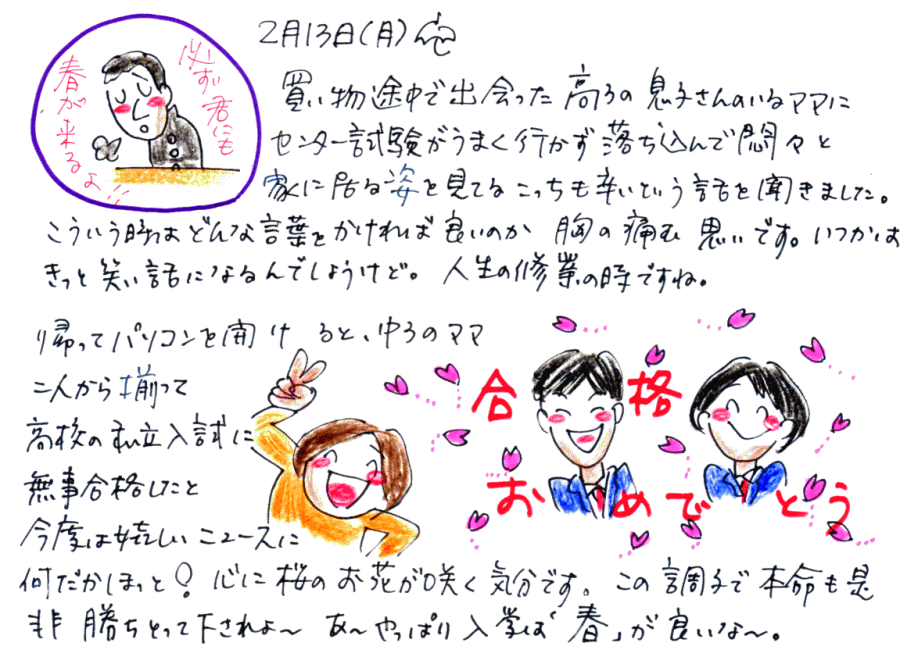 2月13日(月)
必ず君にも
春が来るよ!!
買い物途中で出会った高3の息子さんのいるママに
センター試験がうまく行かず落ち込んで悶々と
家に居る姿を見てるこっちも辛いという話を聞きました。
こういう時はどんな言葉をかければ良いのか 胸の痛む思いです。いつかは
きっと笑い話になるんでしょうけど。 人生の修業の時ですね。
帰ってパソコンを開けると、中3のママ
二人から揃って
高校の私立入試に
無事合格したと
今度は嬉しいニュースに
何だかほっと! 心に桜のお花が咲く気分です。この調子で本命も是
非 勝ちとって下されよ〜 あ〜やっぱり入学は「春」が良いな〜。
合格
おめでとう